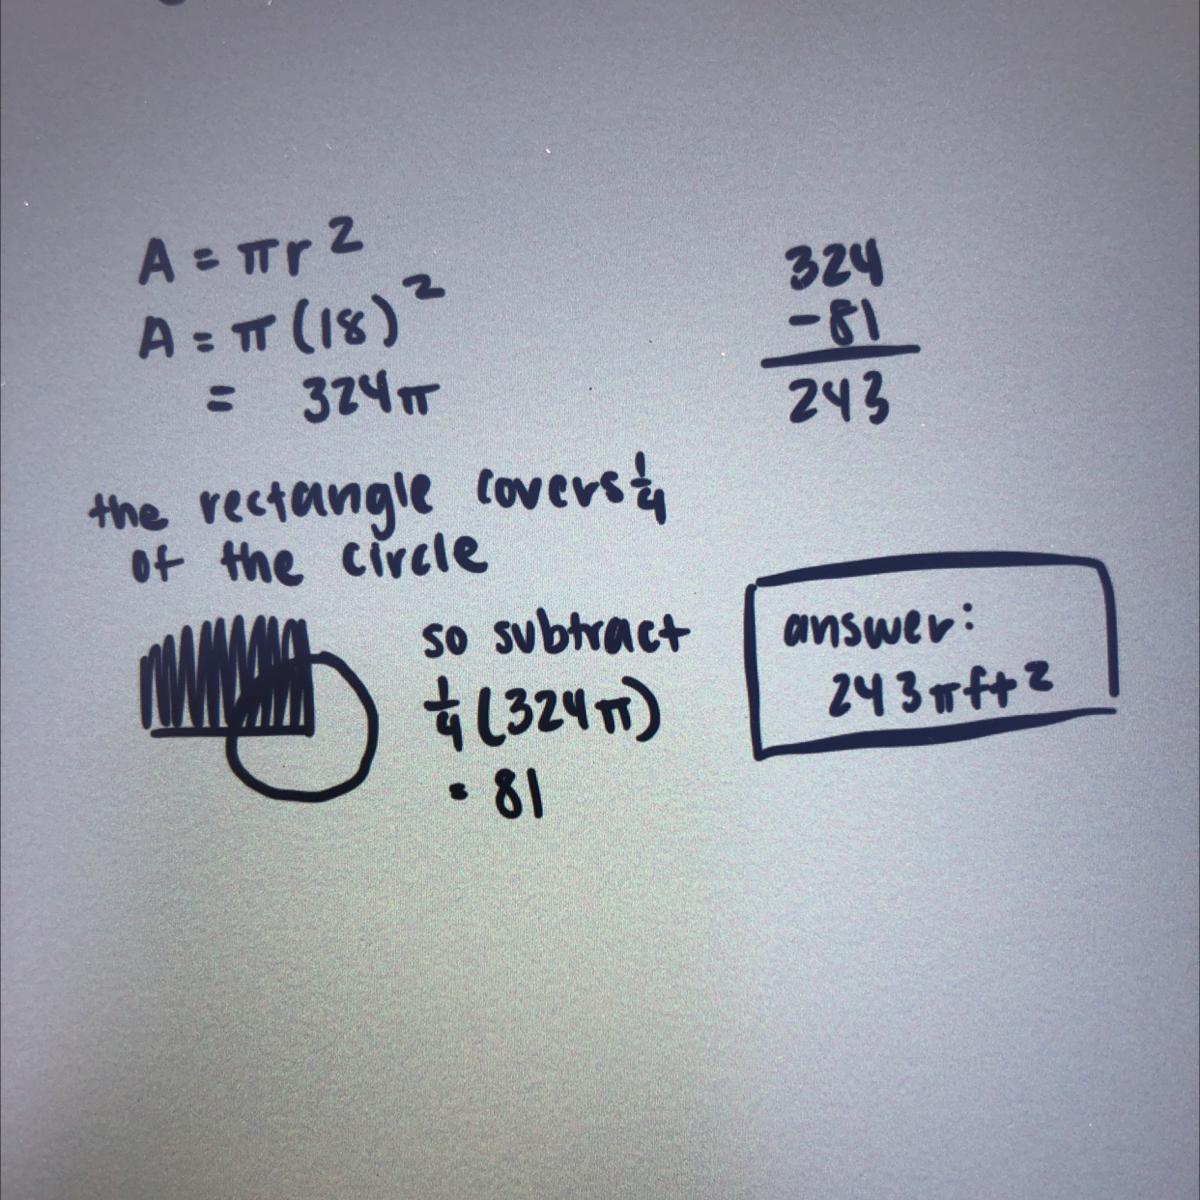 A = πr²
A = π(18)²
= 324π
324
-81
243
the rectangle covers ¼
of the circle
so subtract
¼(324π)
= 81
answer:
243πft²